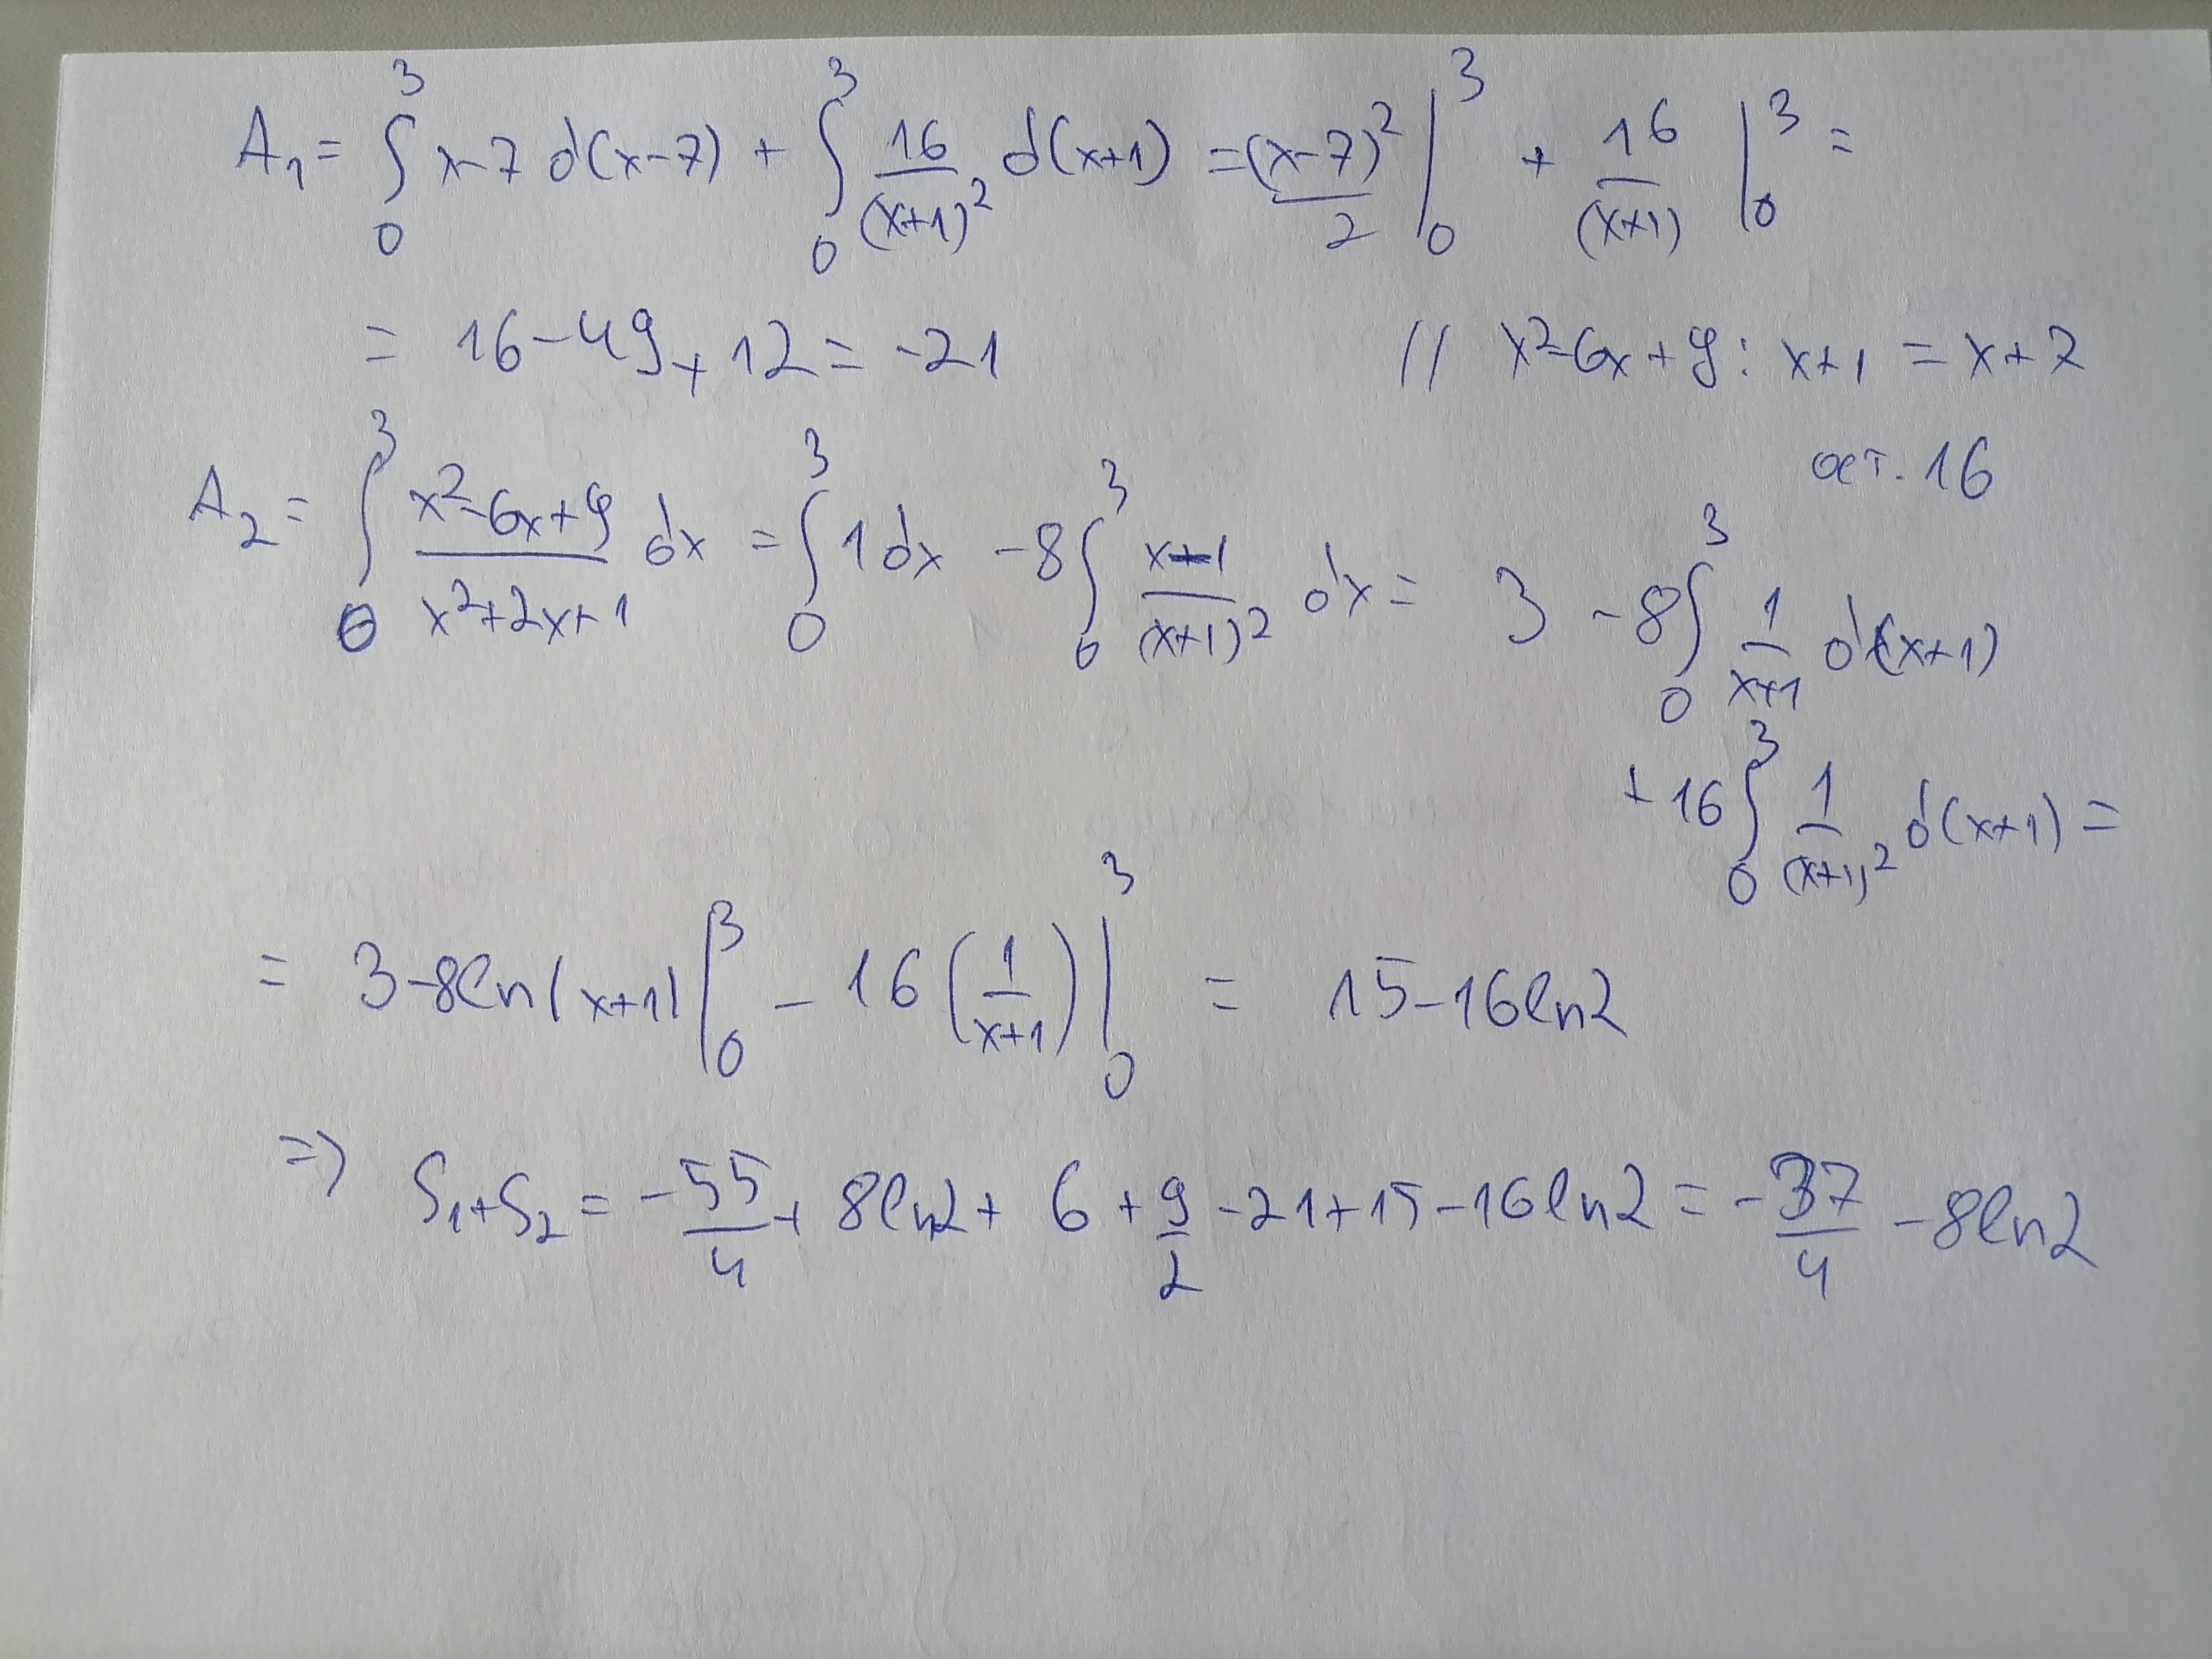 A₁ = ∫₀³ x-7 d(x-7) + ∫₀³ 16/(x+1)² d(x+1) = (x-7)²/2 |₀³ + 16/(x+1) |₀³ =
= 16-49+12 = -21 // x²-6x+9 : x+1 = x+7
ост. 16
A₂ = ∫₀³ (x²-6x+9)/(x²+2x+1) dx = ∫₀³ 1dx -8∫₀³ (x-1)/(x+1)² dx = 3 -8∫₀³ 1/(x+1) d(x+1)
+16∫₀³ 1/(x+1)² d(x+1) =
= 3-8ln|x+1| |₀³ - 16(1/(x+1)) |₀³ = 15-16ln2
=> S₁+S₂ = -55/4 + 8ln2 + 6 + 9/2 -21+15-16ln2 = -37/4 -8ln2